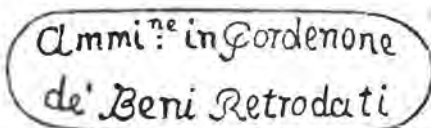 Ammi:ⁿᵉ in Pordenone
de' Beni Retrodati